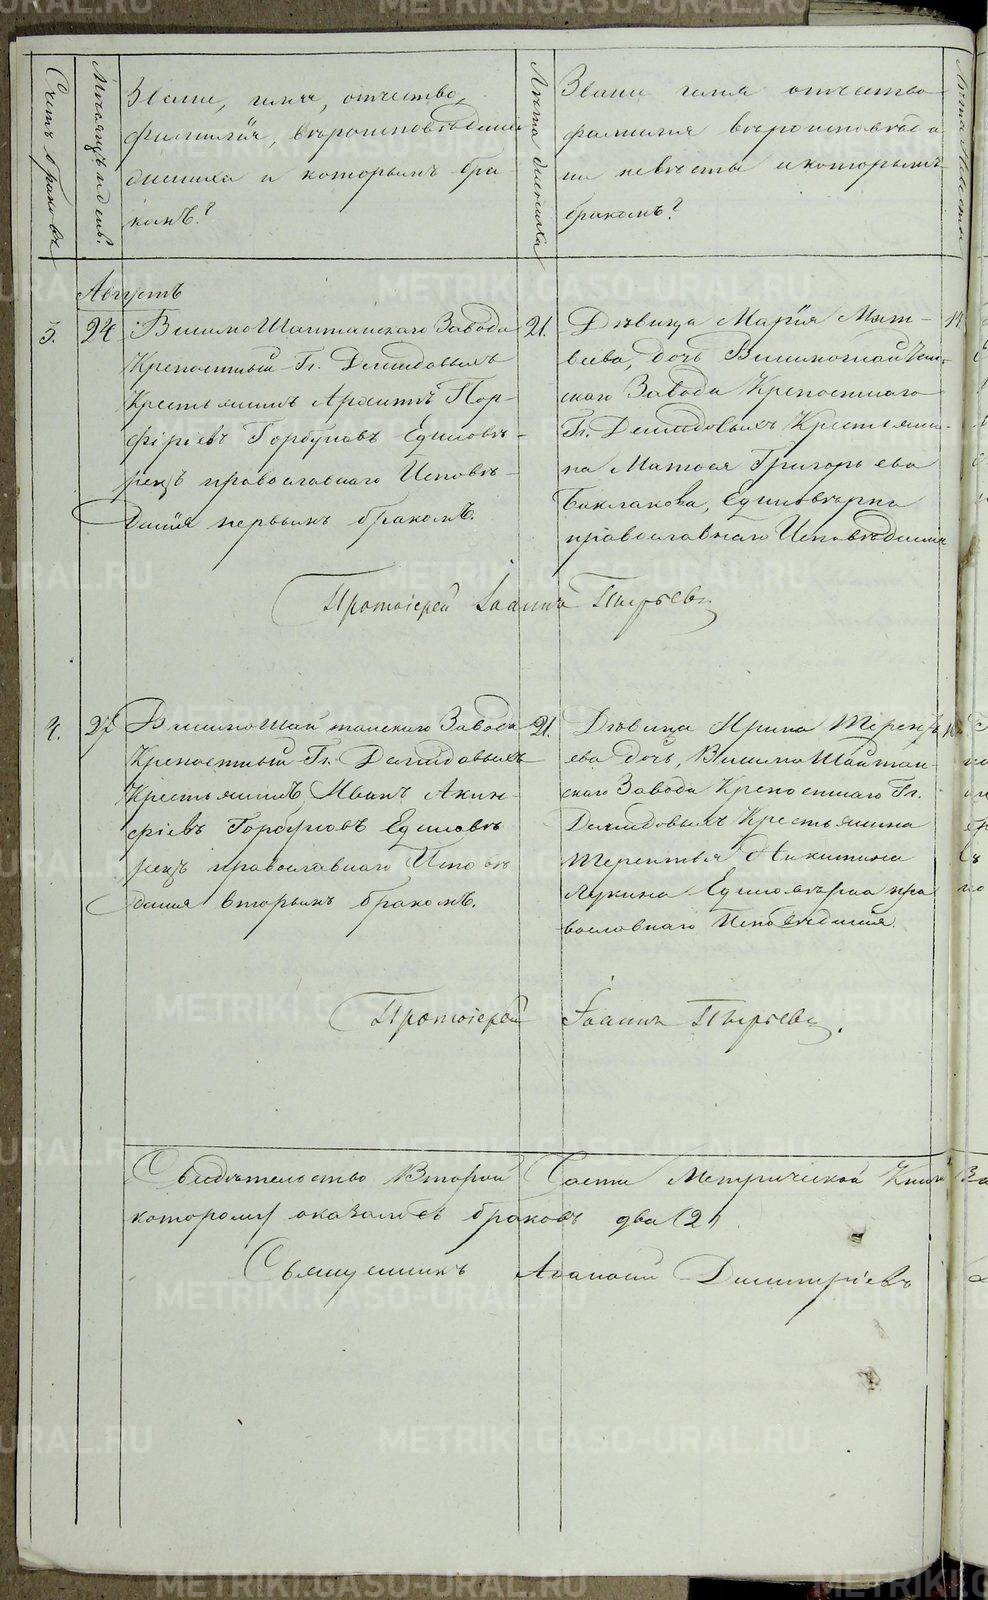 Счетъ браковъ
Мѣсяцъ и день.
Званіе, имя, отчество,
фамилія, вѣроисповѣданіе
жениха и которымъ бра-
комъ?
Лѣта жениха
Званіе имя отчество
фамилія вѣроисповѣда
ни невѣсты и которымъ
бракомъ?
Лѣта невѣсты
Августъ
3.
24
Висимо Шайтанскаго Завода
Крепостный Гг. Демидовыхъ
Крестьянинъ Архиппъ Пор-
фиріевъ Горбуновъ Единовѣ-
рецъ православнаго Исповѣ-
данія первымъ бракомъ.
21.
Дѣвица Марія Мат-
веева, дочь Висимошайтан-
скаго Завода Крепостнаго
Гг. Демидовыхъ Крестьяни-
на Матвея Григорьева
Баклакова, Единовѣрка
православнаго Исповѣданія
Протоіерей Іоаннъ Пырьевъ
4.
27
Висимошайтанскаго Завода
Крепостный Гг. Демидовыхъ
Крестьянинъ Иванъ Акин-
фіевъ Горбуновъ Единовѣ
рецъ православнаго Исповѣ
данія вторымъ бракомъ.
21.
Дѣвица Ирина Терентъ
ева Дочь, Висимошайтан-
скаго Завода Крепостнаго Гг.
Демидовыхъ Крестьянина
Терентья Никитина
Лукина Единовѣрка пра
вославнаго Исповѣданія.
Протоіерей Іоаннъ Пырьевъ.
Свидѣтельство Второй Части Метрической Книги
которому оказалось браковъ два (2)
Священникъ Афанасій Димитріевъ
METRIKI.GASO-URAL.RU